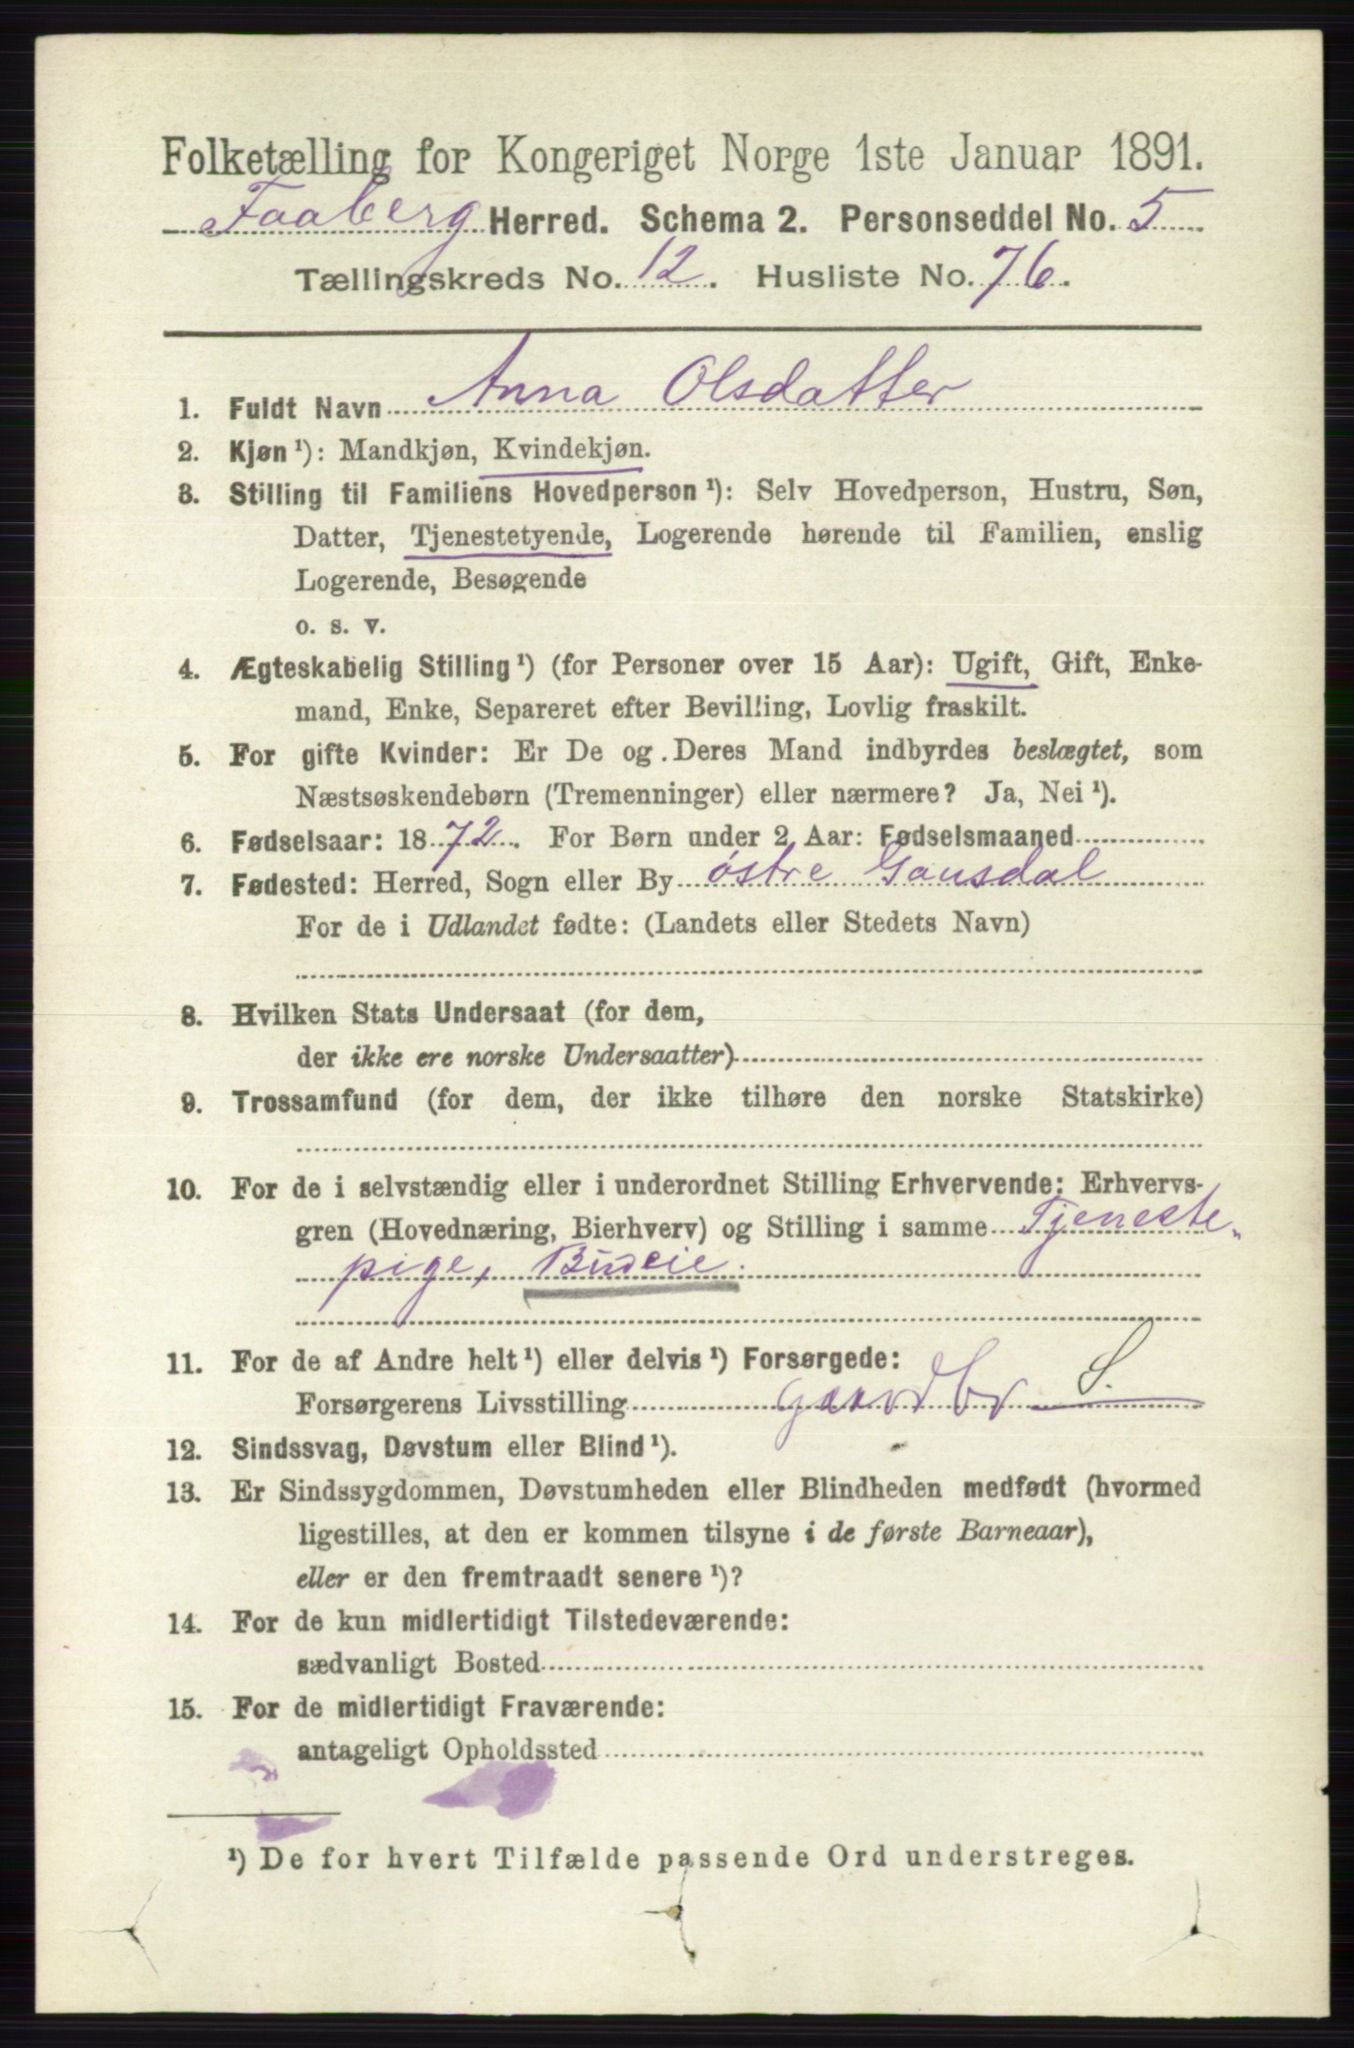 Folketælling for Kongeriget Norge 1ste Januar 1891.
Faaberg Herred. Schema 2. Personseddel No. 5
Tællingskreds No. 12. Husliste No. 76.
1. Fuldt Navn Anna Olsdatter
2. Kjøn¹): Mandkjøn, Kvindekjøn.
3. Stilling til Familiens Hovedperson¹): Selv Hovedperson, Hustru, Søn,
Datter, Tjenestetyende, Logerende hørende til Familien, enslig
Logerende, Besøgende
o. s. v.
4. Ægteskabelig Stilling¹) (for Personer over 15 Aar): Ugift, Gift, Enke-
mand, Enke, Separeret efter Bevilling, Lovlig fraskilt.
5. For gifte Kvinder: Er De og Deres Mand indbyrdes beslægtet, som
Næstsøskendebørn (Tremenninger) eller nærmere? Ja, Nei¹).
6. Fødselsaar: 1872. For Børn under 2 Aar: Fødselsmaaned
7. Fødested: Herred, Sogn eller By østre Gausdal
For de i Udlandet fødte: (Landets eller Stedets Navn)
8. Hvilken Stats Undersaat (for dem,
der ikke ere norske Undersaatter)
9. Trossamfund (for dem, der ikke tilhøre den norske Statskirke)
10. For de i selvstændig eller i underordnet Stilling Erhvervende: Erhvervs-
gren (Hovednæring, Bierhverv) og Stilling i samme Tjeneste-
pige, Budeie.
11. For de af Andre helt¹) eller delvis¹) Forsørgede:
Forsørgerens Livsstilling gaardbr S.
12. Sindssvag, Døvstum eller Blind¹).
13. Er Sindssygdommen, Døvstumheden eller Blindheden medfødt (hvormed
ligestilles, at den er kommen tilsyne i de første Barneaar),
eller er den fremtraadt senere¹)?
14. For de kun midlertidigt Tilstedeværende:
sædvanligt Bosted
15. For de midlertidigt Fraværende:
antageligt Opholdssted
¹) De for hvert Tilfælde passende Ord understreges.